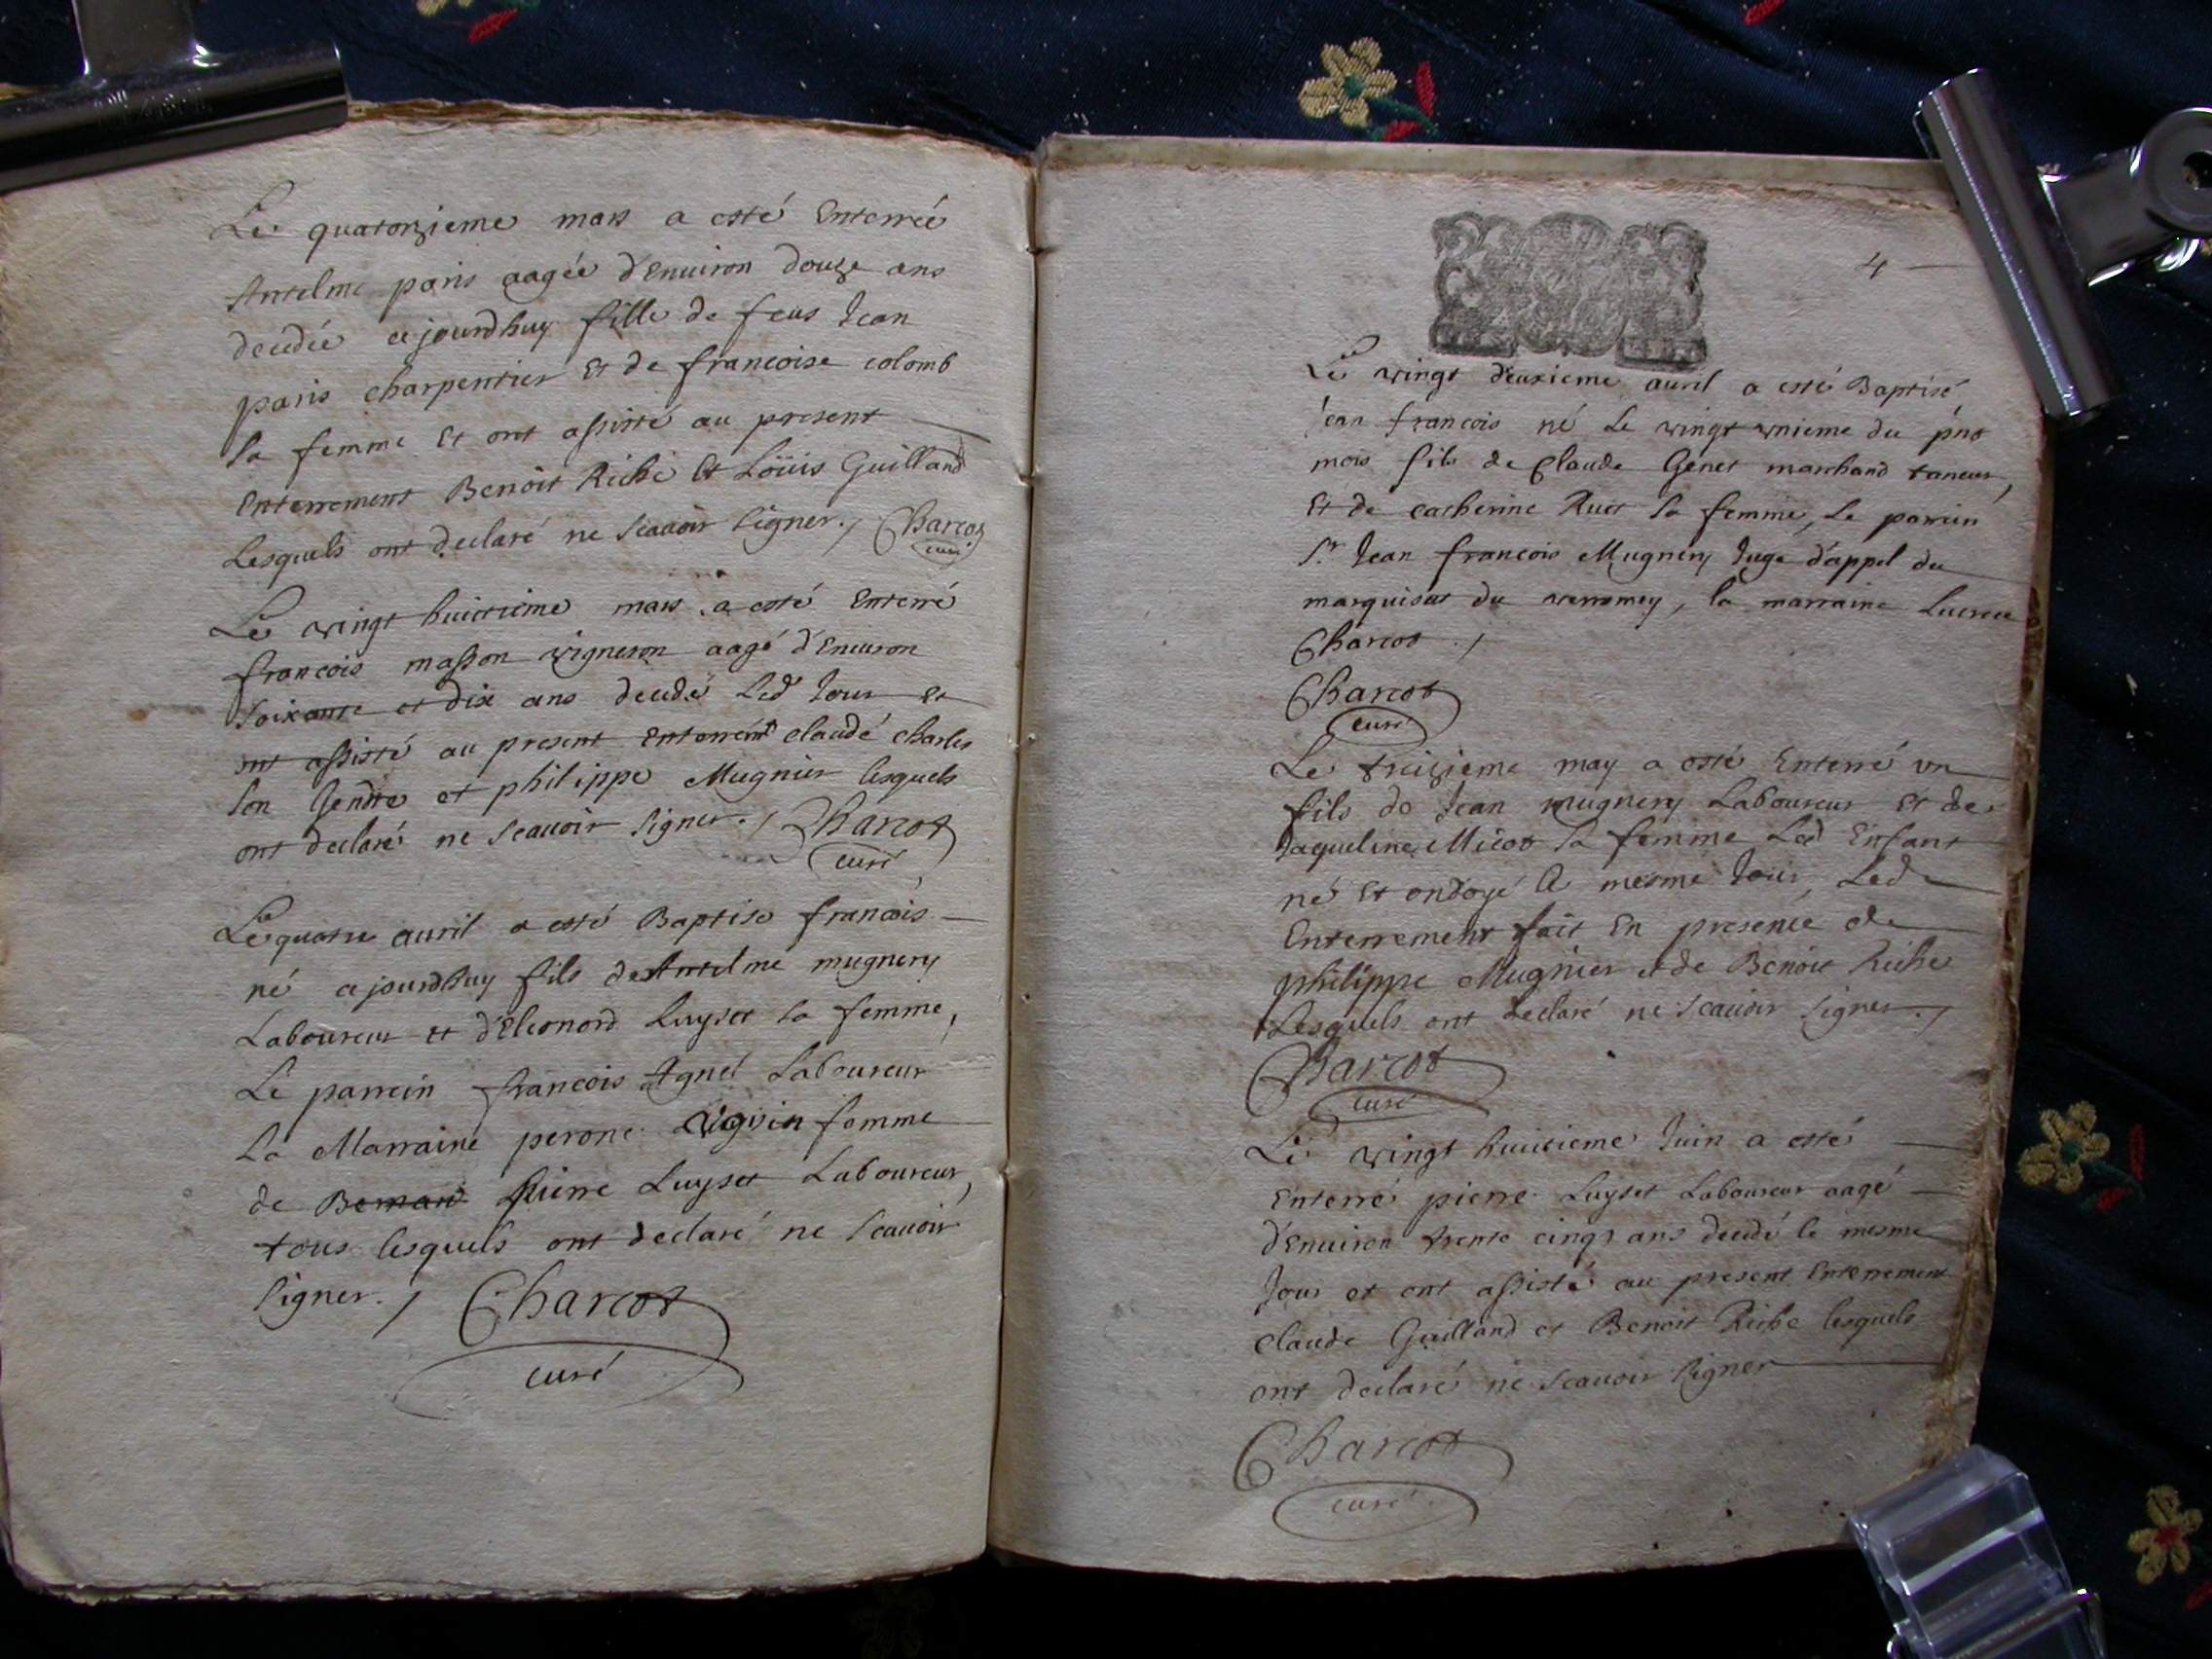 Le quatorzieme mars a esté Enterrée
Antelme paris aagée d'Enuiron douze ans
decedée ce jourdhuy fille de feus Jean
paris charpentier Et de francoise colomb
sa femme Et ont assisté au present
Enterrement Benoit Riche Et Loüis Guilland
Lesquels ont declaré ne scauoir signer. / Charcot
curé
Le vingt huictieme mars a esté Enterré
francois masson vigneron aagé d'Enuiron
soixante et dix ans decedé Led Jour et
ont assisté au present Enterremt claude charles
son Gendre et philippe Mugnier lesquels
ont declaré ne scauoir signer. / Charcot
curé
Le quatre auril a esté Baptise francois
né cejourdhuy fils de Antelme mugnery
Laboureur et d'Eleonord Luyset sa femme,
Le parrein francois Agnel Laboureur
La Marraine perone femme
de Bernard pierre Luyset Laboureur,
tous lesquels ont declaré ne scauoir
signer. / Charcot
curé
4
Le vingt deuxieme auril a esté Baptisé
Jean francois né Le vingt vnieme du pnt
mois fils de Claude Genet marchand taneur,
Et de catherine Ruet sa femme, Le parrein
Sr Jean francois Mugnery Juge d'appel du
marquisat du , la marraine Lucrece
Charcot. /
Charcot
curé
Le treizieme may a esté Enterré vn
fils de Jean mugnery Laboureur Et de
Jaqueline Micot sa femme Led Enfant
né Et ondoyé Le mesme Jour, Led
Enterrement fait En presence de
philippe Mugnier et de Benoit Riche
Lesquels ont declaré ne scauoir signer. /
Charcot
curé
Le vingt huitieme Juin a esté
Enterré pierre Luyset Laboureur aagé
d'Enuiron trente cinq ans decedé le mesme
Jour et ont assisté au present Enterrement
Claude Guilland et Benoit Riche lesquels
ont declaré ne scauoir signer
Charcot
curé